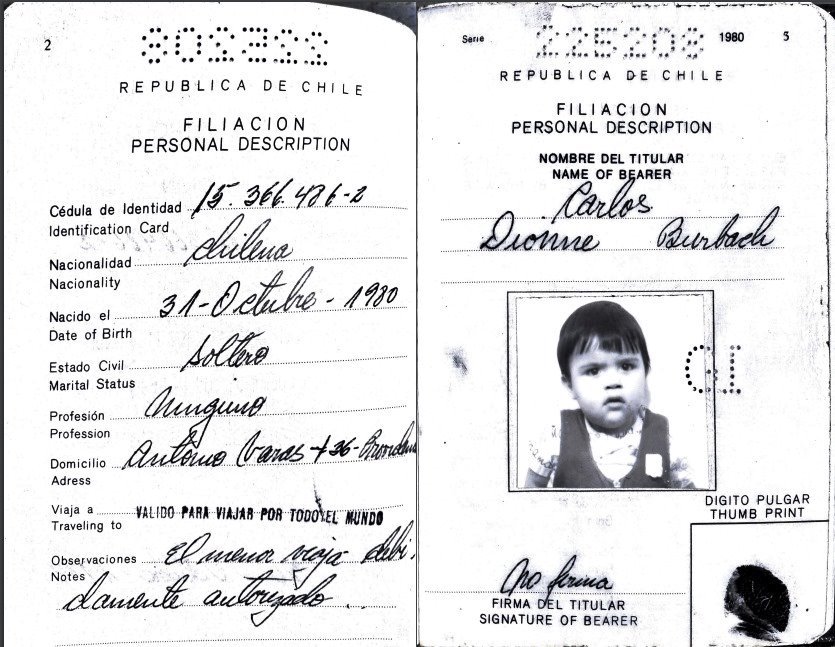 2
REPUBLICA DE CHILE
FILIACION
PERSONAL DESCRIPTION
Cédula de Identidad 15.366.486-2
Identification Card
Nacionalidad chilena
Nacionality
Nacido el 31-Octubre-1980
Date of Birth
Estado Civil soltero
Marital Status
Profesión Ninguno
Profession
Domicilio Antonio Varas
Adress
Viaja a VALIDO PARA VIAJAR POR TODO EL MUNDO
Traveling to
Observaciones El menor viaja debi-
Notes
damente autorizado..
Serie 225208 1980 5
REPUBLICA DE CHILE
FILIACION
PERSONAL DESCRIPTION
NOMBRE DEL TITULAR
NAME OF BEARER
Carlos
Dionne Burbach
DIGITO PULGAR
THUMB PRINT
no firma
FIRMA DEL TITULAR
SIGNATURE OF BEARER